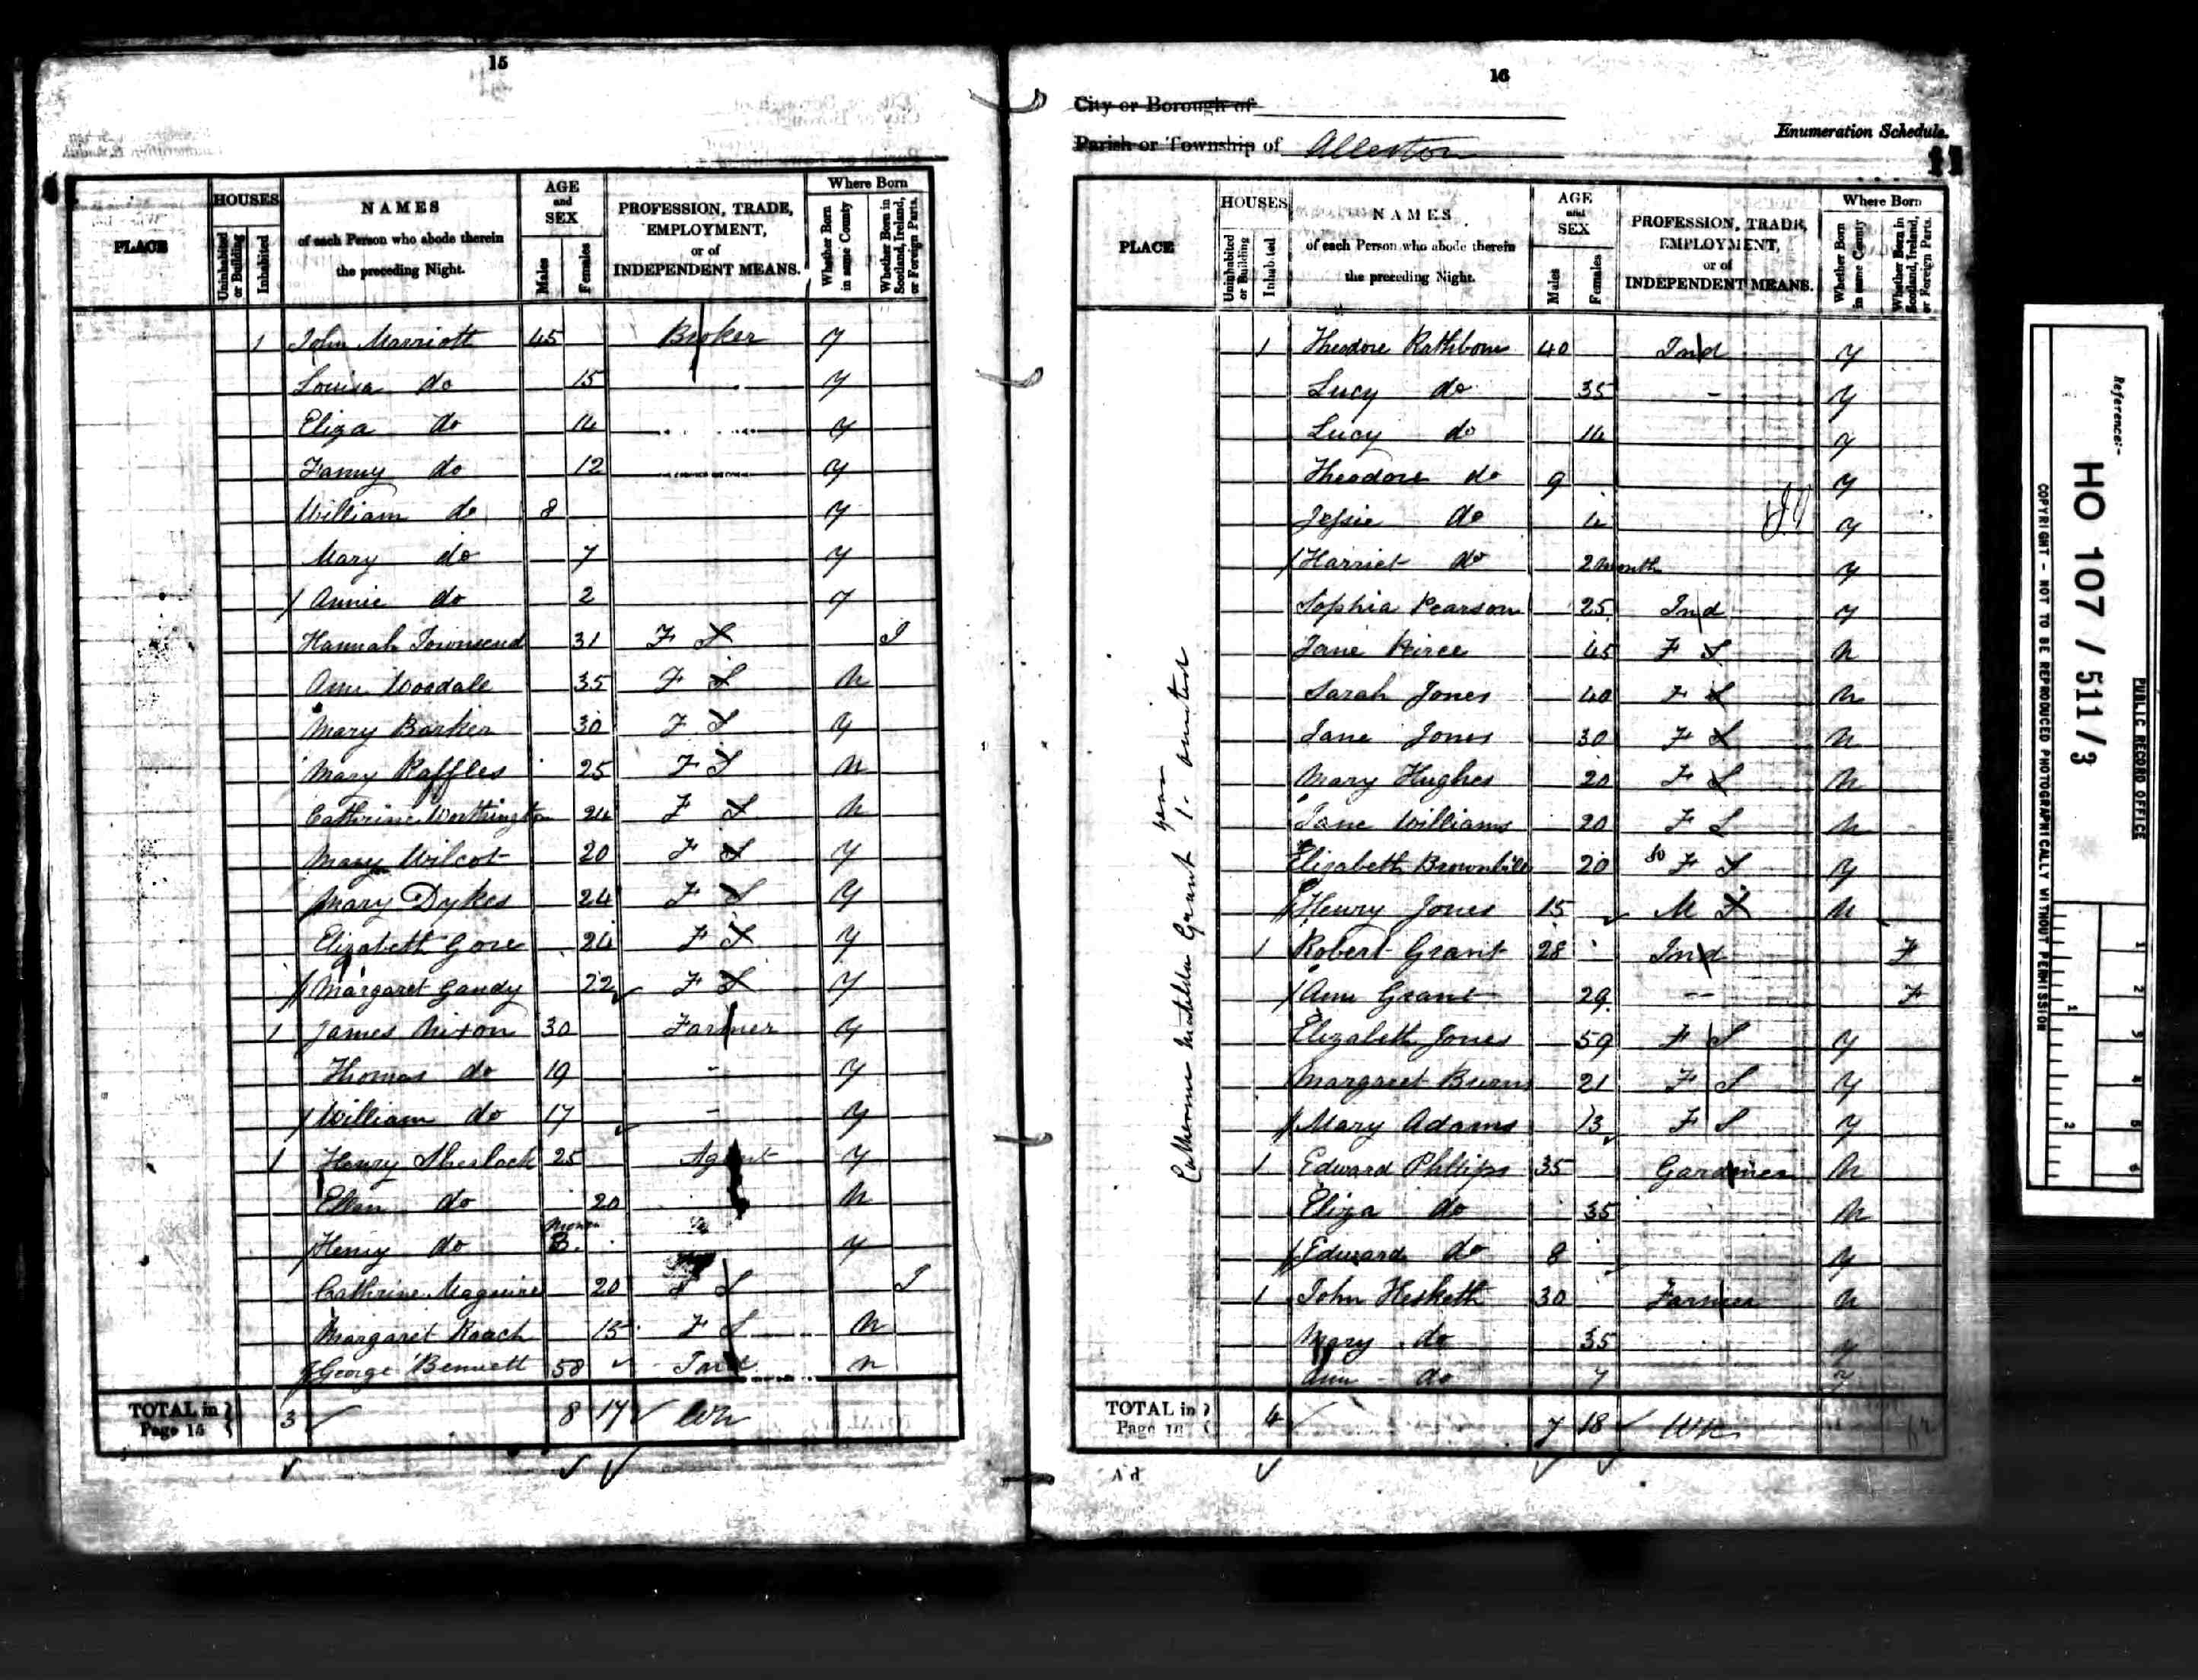 15
PLACE
HOUSES
Uninhabited or Building
Inhabited
NAMES
of each Person who abode therein
the preceding Night.
AGE
and
SEX
Males
Females
PROFESSION, TRADE,
EMPLOYMENT,
or of
INDEPENDENT MEANS.
Where Born
Whether Born in same County
Whether Born in Scotland, Ireland, or Foreign Parts.
1 John Marriott 45 Broker Y
Louisa do 15 Y
Eliza do 14 Y
Fanny do 12 Y
William do 8 Y
Mary do 7 Y
Annie do 2 Y
Hannah Townsend 31 F S I
Ann Woodale 35 F S N
Mary Barker 30 F S Y
Mary Raffles 25 F S N
Cathrine Worthington 24 F S N
Mary Wilcot 20 F S Y
Mary Dykes 24 F S Y
Elizabeth Gore 24 F S Y
Margaret Gandy 22 F S Y
1 James Nixon 30 Farmer Y
Thomas do 19 - Y
William do 17 - Y
1 Henry Sherlock 25 Agent Y
Ellen do 20 N
Henry do 8. Y
Cathrine Maguire 20 F S I
Margaret Roach 15 F S N
George Bennett 58 Ind N
TOTAL in Page 15 3 8 17
16
City or Borough of
Parish or Township of Allerton
Enumeration Schedule.
PLACE
HOUSES
Uninhabited or Building
Inhabited
NAMES
of each Person who abode therein
the preceding Night.
AGE
and
SEX
Males
Females
PROFESSION, TRADE,
EMPLOYMENT,
or of
INDEPENDENT MEANS.
Where Born
Whether Born in same County
Whether Born in Scotland, Ireland, or Foreign Parts.
1 Theodore Rathbone 40 Ind Y
Lucy do 35 - Y
Lucy do 14 Y
Theodore do 9 Y
Jessie do 4 Y
Harriet do 2 month Y
Sophia Pearson 25 Ind Y
Jane Peirce 45 F S N
Sarah Jones 40 F S N
Jane Jones 30 F S N
Mary Hughes 20 F S N
Jane Williams 20 F S N
Elizabeth Brownbill 20 F S Y
Henry Jones 15 M S N
1 Robert Grant 28 Ind F
Ann Grant 29 -- F
Elizabeth Jones 59 F S Y
Margreet Burns 21 F S Y
Mary Adams 13 F S Y
1 Edward Phllips 35 Gardener N
Eliza do 35 N
Edward do 8 Y
1 John Hesketh 30 Farmer N
Mary do 35 Y
Ann do 7 Y
TOTAL in Page 16 4 7 18
Catherine Matilda Grant 1. omitted
Reference:-
HO 107 / 511 / 3
PUBLIC RECORD OFFICE
COPYRIGHT - NOT TO BE REPRODUCED PHOTOGRAPHICALLY WITHOUT PERMISSION
1
2
3
4
5
6
1
2